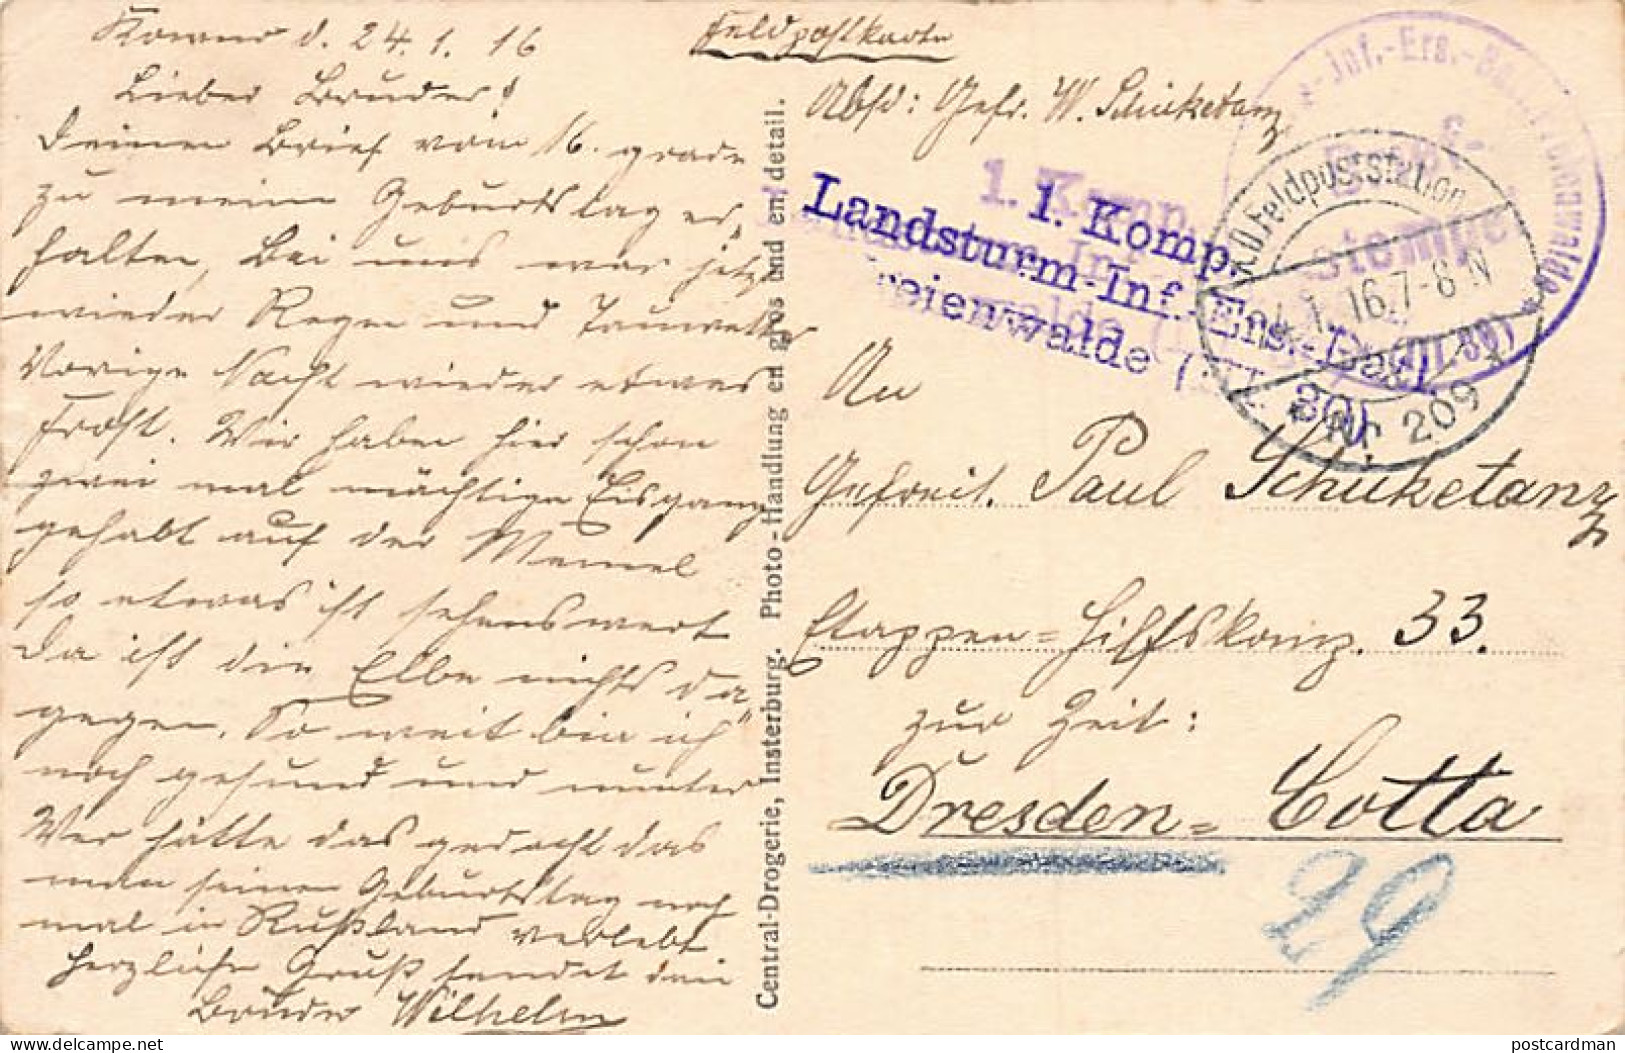 Kowno d. 24.1.16
Lieber Bruder!
Deinen Brief vom 16. grade
zu meinem Geburtstag er„
halten, Bei uns war jetzt
wieder Regen und Tauwetter
Vorige Nacht wieder etwas
Frost. Wir haben hier schon
zwei mal mächtigen Eisgang
gehabt auf der Memel
so etwas ist sehenswert
da ist die Elbe nichts da„
gegen. So weit bin ich
noch gesund und munter
Wer hätte das gedacht das
man seinen Geburtstag noch
mal in Rußland verlebt
herzliche Gruß sendet dein
Bruder Wilhelm
Central-Drogerie, Insterburg. Photo-Handlung en gros und en detail.
Feldpostkarte
Absd: Gefr. W. Schicketanz
1. Komp.
Landsturm-Inf.-Ers.-Batl.
Freienwalde (III. 30).
Inf.-Ers.-Batl. Freienwalde (III.30)
Briefstempel
K.D.Feldpoststation
24.1.16.7-8N
Nr. 209
An
Gefreit. Paul Schicketanz
Etappen=Hilfskomp. 33.
zur Zeit:
Dresden=Cotta
29
postcardman